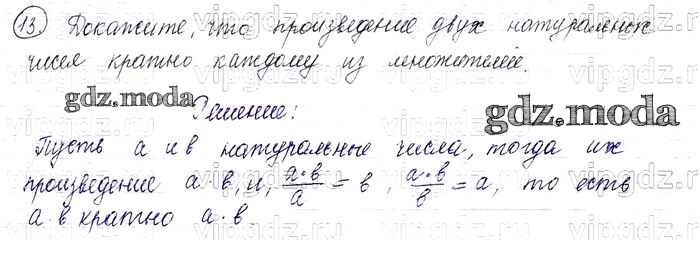 13. Докажите, что произведение двух натуральных
чисел кратно каждому из множителей.
gdz.moda
Решение:
gdz.moda
Пусть a и в натуральные числа, тогда их
произведение a·в, и, a·в/a = в, a·в/в = a, то есть
a·в кратно a·в.